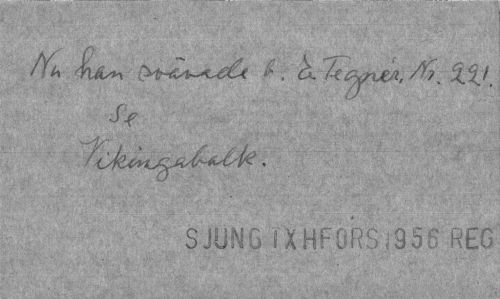 Nu han svävade b. E. Tegnér. Nr. 221.
Se
Vikingabalk.
SJUNG IX HFORS 1956 REG